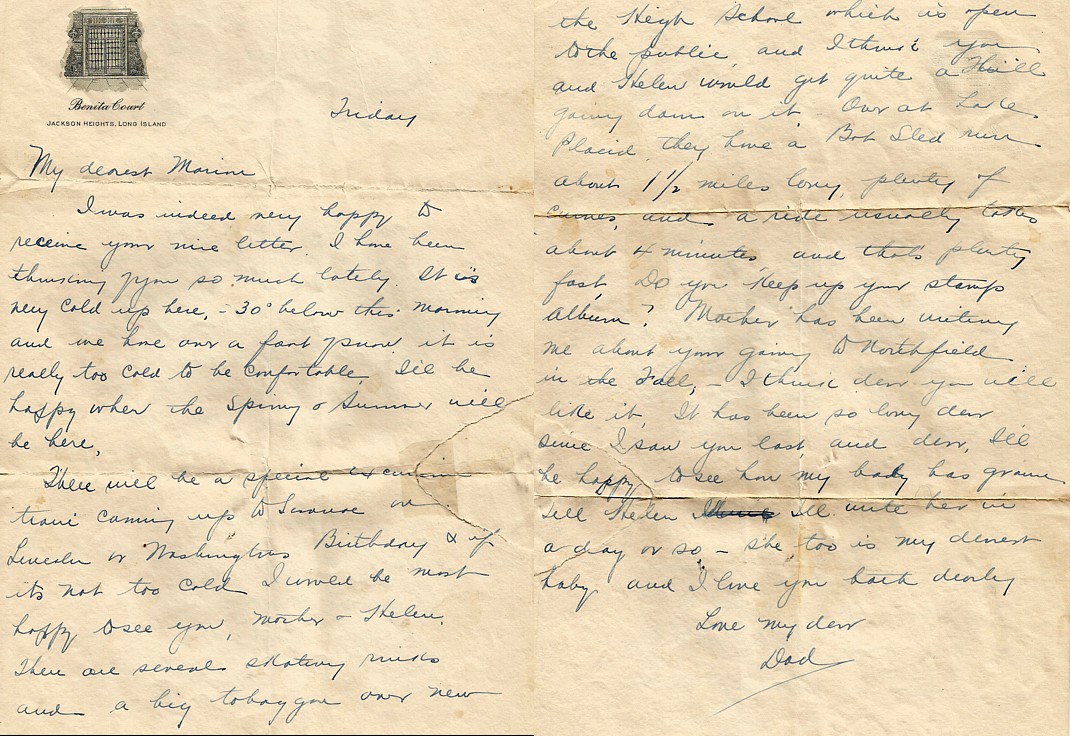 Benita Court
JACKSON HEIGHTS, LONG ISLAND
Friday
My dearest Marion
I was indeed very happy to
receive your nice letter. I have been
thinking of you so much lately. It is
very cold up here, - 30° below this morning
and we have over a foot of snow it is
really too cold to be comfortable, I'll be
happy when the Spring & Summer will
be here,
There will be a special excursion
train coming up to Saranac on
Lincoln or Washingtons Birthday & if
its not too cold I would be most
happy to see you, Mother & Helen.
There are several skating rinks
and a big toboggan over near
the High School which is open
to the public, and I think you
and Helen would get quite a thrill
going down on it. Over at Lake
Placid, they have a Bob Sled run
about 1 1/2 miles long, plenty of
curves, and a ride usually takes
about 4 minutes and that's plenty
fast. Do you keep up your stamp
album? Mother has been writing
me about your going to Northfield
in the Fall, - I think dear you will
like it, It has been so long dear
since I saw you last and dear, I'll
be happy to see how my baby has grown
Tell Helen I'll write her in
a day or so - she, too is my dearest
baby and I love you both dearly
Love my dear
Dad